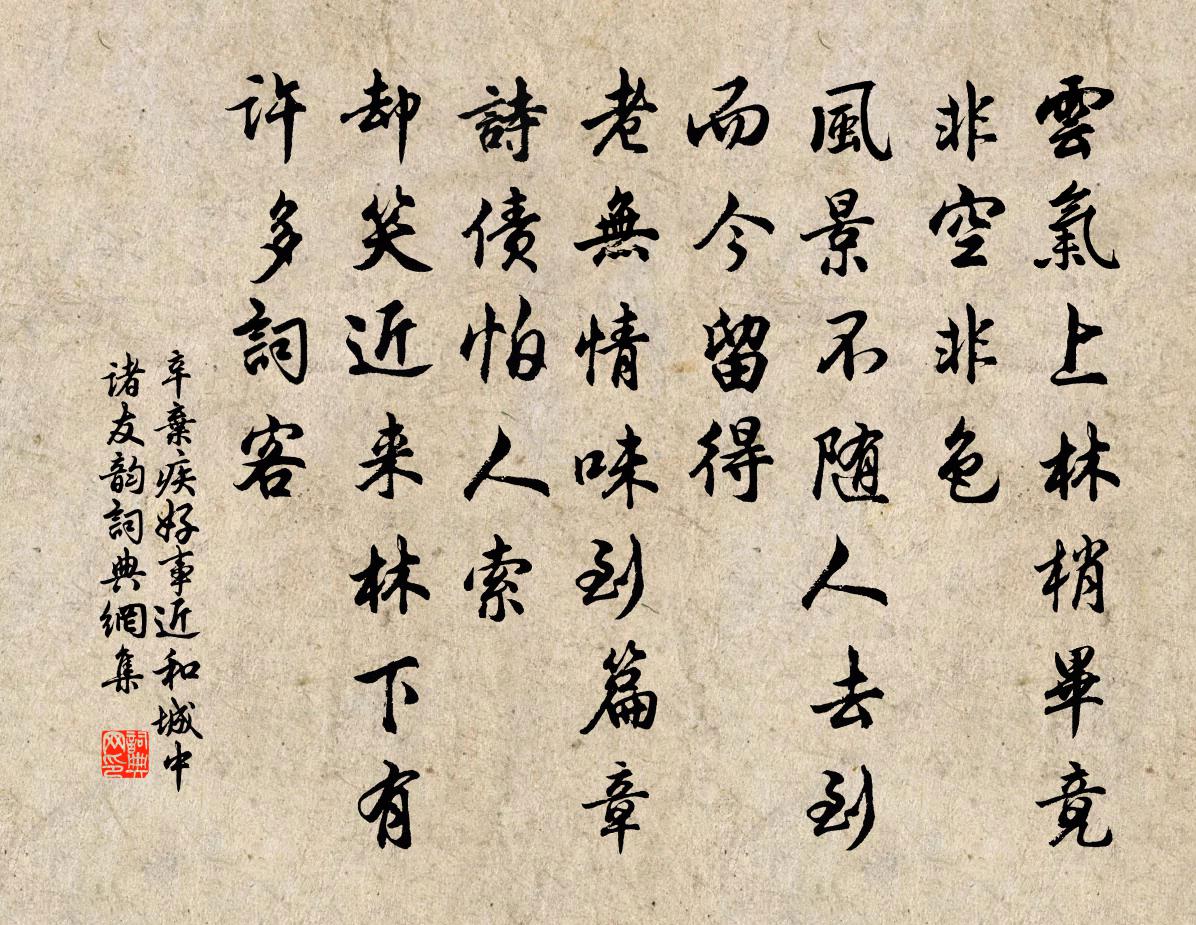 雲氣上林梢畢竟
非空非色
風景不随人去到
而今留得
老無情味到篇章
詩債怕人索
却笑近来林下有
許多詞客
辛棄疾好事近和城中
诸友韵詞典網集
詞典网印